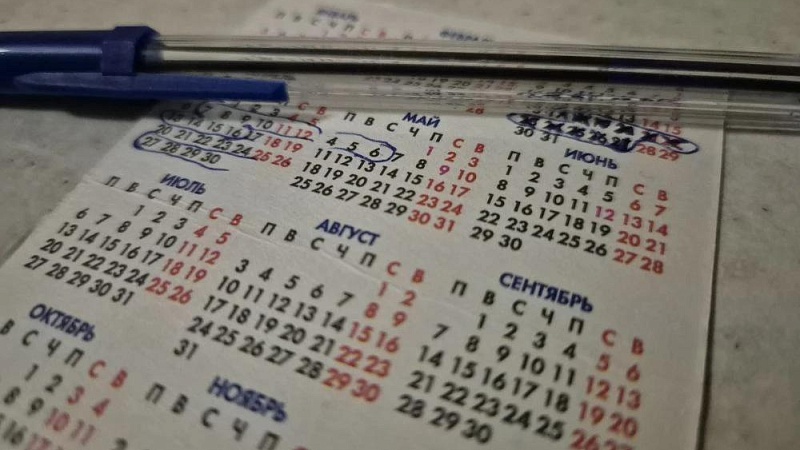 14 15
28 29
30 31
С В
9 10 11 12
14 15 16 17 18 19
20 21 22 23 24 25 26
27 28 29 30
МАЙ
П В С Ч П С В
1 2 3
4 5 6 7 8 9 10
11 12 13 14 15 16 17
18 19 20 21 22 23 24
25 26 27 28 29 30 31
ИЮНЬ
П В С Ч П С В
1 2 3 4 5 6 7
8 9 10 11 12 13 14
15 16 17 18 19 20 21
22 23 24 25 26 27 28
29 30
ИЮЛЬ
П В С Ч П С В
1 2 3 4 5
6 7 8 9 10 11 12
13 14 15 16 17 18 19
20 21 22 23 24 25 26
27 28 29 30 31
АВГУСТ
П В С Ч П С В
1 2
3 4 5 6 7 8 9
10 11 12 13 14 15 16
17 18 19 20 21 22 23
24 25 26 27 28 29 30
31
СЕНТЯБРЬ
П В С Ч П С В
1 2 3 4 5 6
7 8 9 10 11 12 13
14 15 16 17 18 19 20
21 22 23 24 25 26 27
28 29 30
ОКТЯБРЬ
В С Ч П С В
1 2 3 4
8 9 10 11
НОЯБРЬ
П В С Ч П С В